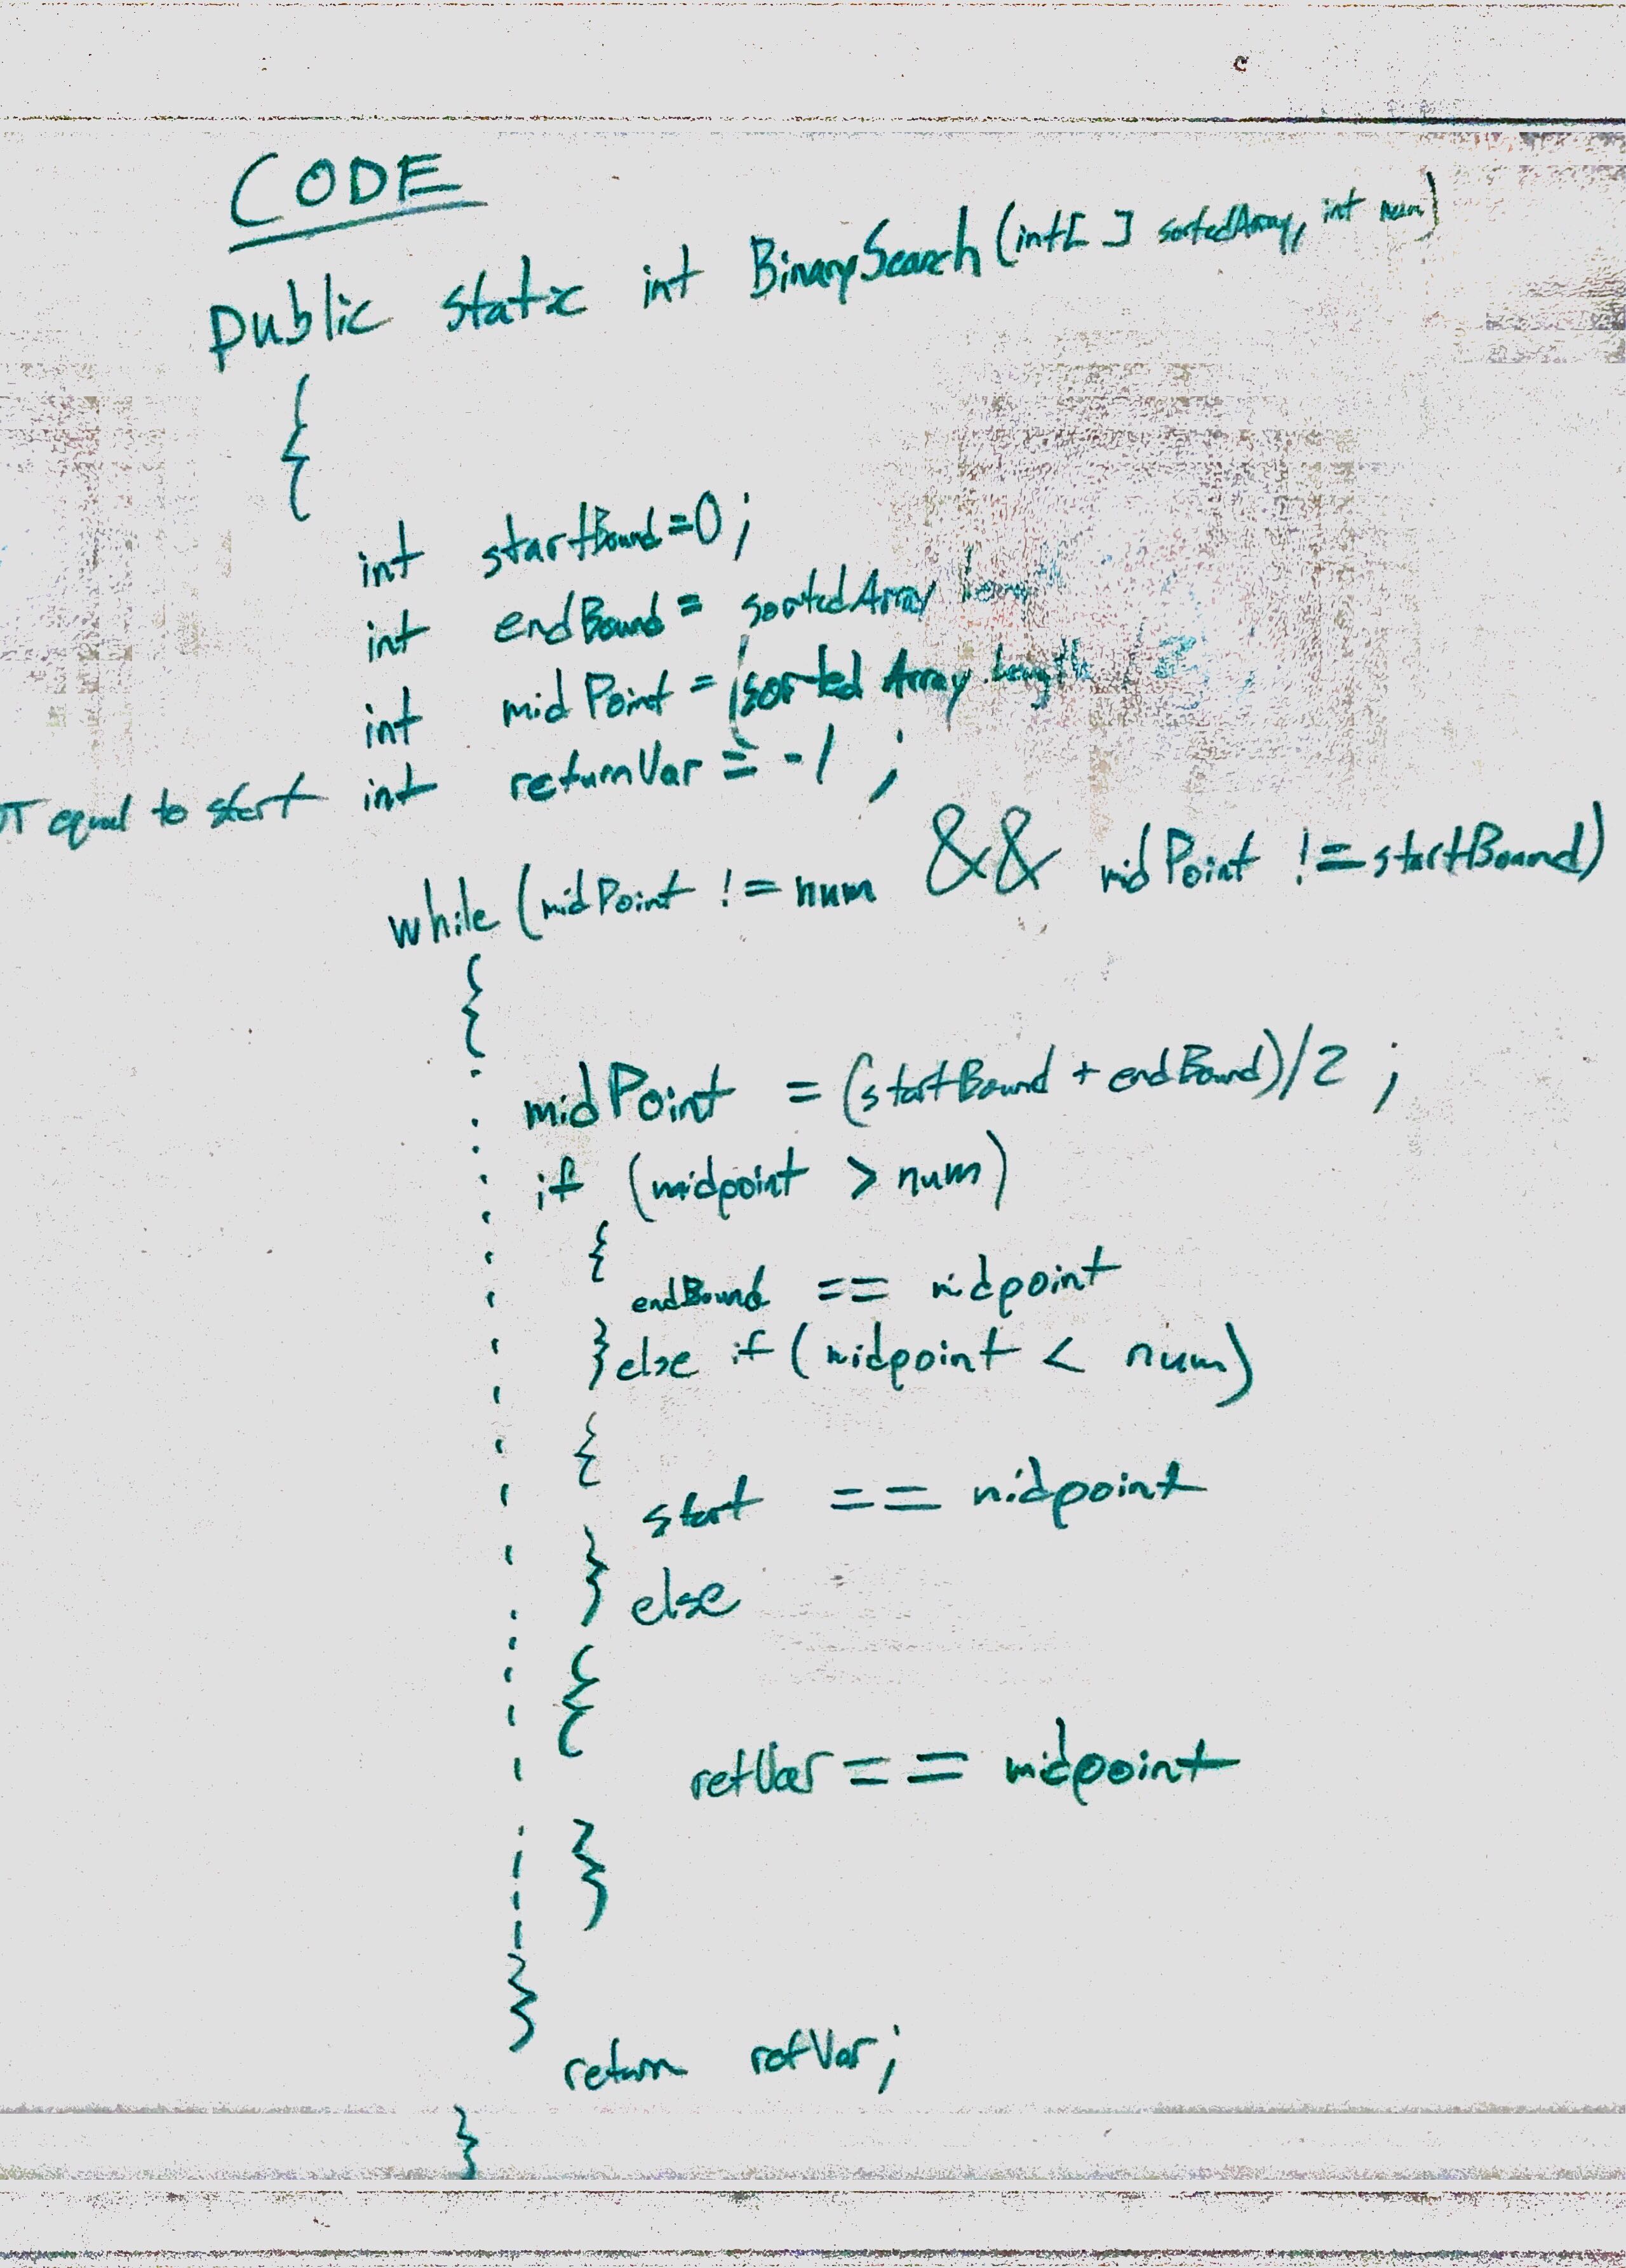 CODE
public static int BinarySearch(int[ ] sortedArray, int num)
{
int startBound=0;
int endBound = sortedArray
int midPoint = (sorted Array.length / 2
int returnVar = -1 ;
equal to start
while (midPoint != num && midPoint != startBound)
{
midPoint = (startBound + endBound)/2 ;
if (midpoint > num)
{
endBound == midpoint
}else if (midpoint < num)
{
start == midpoint
} else
{
retVar == midpoint
}
}
return retVar;
}